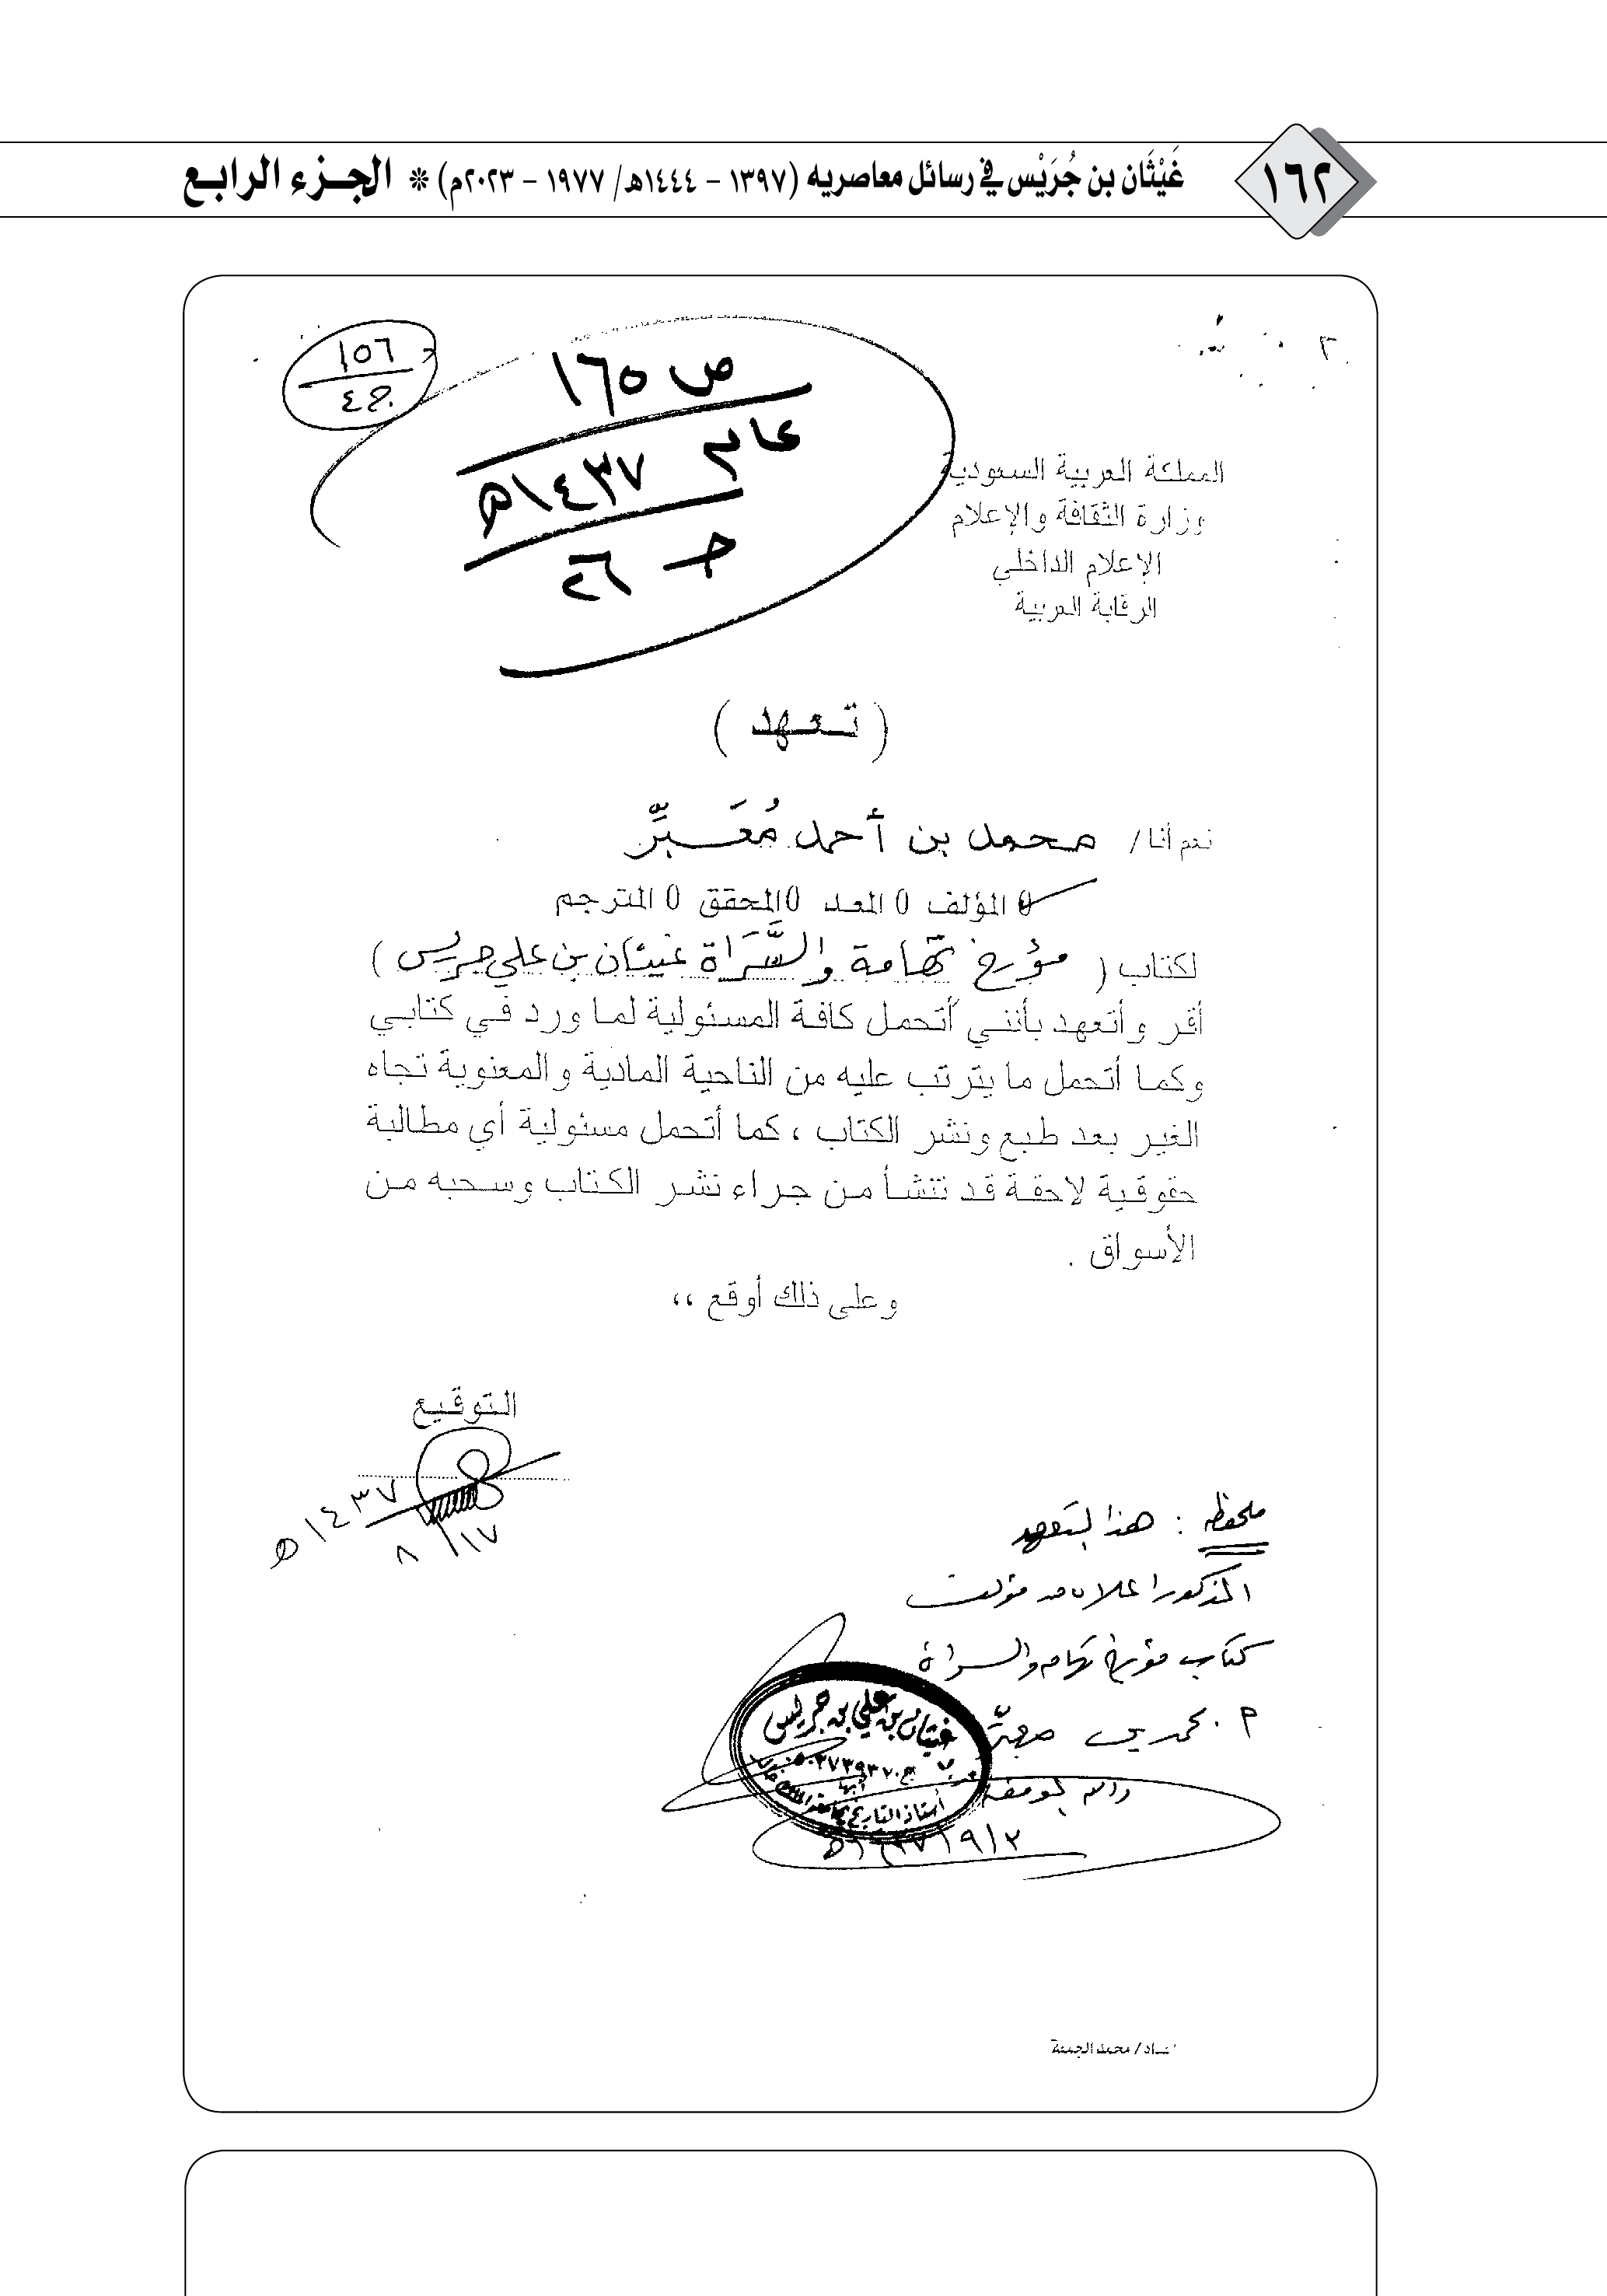 ١٦٢
غَيْثَان بن جُرَيْس في رسائل معاصريه (١٣٩٧ - ١٤٤٤هـ/ ١٩٧٧ - ٢٠٢٣م) * الجزء الرابع
١٥٦
ج٤
ص ١٦٥
عام
١٤٣٧هـ
ج ٢٦
المملكة العربية السعودية
وزارة الثقافة والإعلام
الإعلام الداخلي
الرقابة العربية
( تعهد )
نعم أنا / محمد بن أحمد مُعَبِّر
0 المؤلف 0 المعد 0 المحقق 0 المترجم
لكتاب ( مؤرخ تهامة والسَّرَاة غيثان بن علي جريس )
أقر وأتعهد بأنني أتحمل كافة المسئولية لما ورد في كتابي
وكما أتحمل ما يترتب عليه من الناحية المادية والمعنوية تجاه
الغير بعد طبع ونشر الكتاب ، كما أتحمل مسئولية أي مطالبة
حقوقية لاحقة قد تنشأ من جراء نشر الكتاب وسحبه من
الأسواق .
وعلى ذلك أوقع ،،
التوقيع
١٤٣٧هـ
٨/١٧
ملحظه : هذا التعهد
المذكور اعلاه من مؤلف
كتاب مؤرخ تهامه والسراة
أ. محمد بن معبّر
والله الموفق
غيثان بن علي بن جريس
أبها
أستاذ التاريخ بجامعة الملك خالد
١٤٣٧/٩/٢هـ
محمد الجمعة